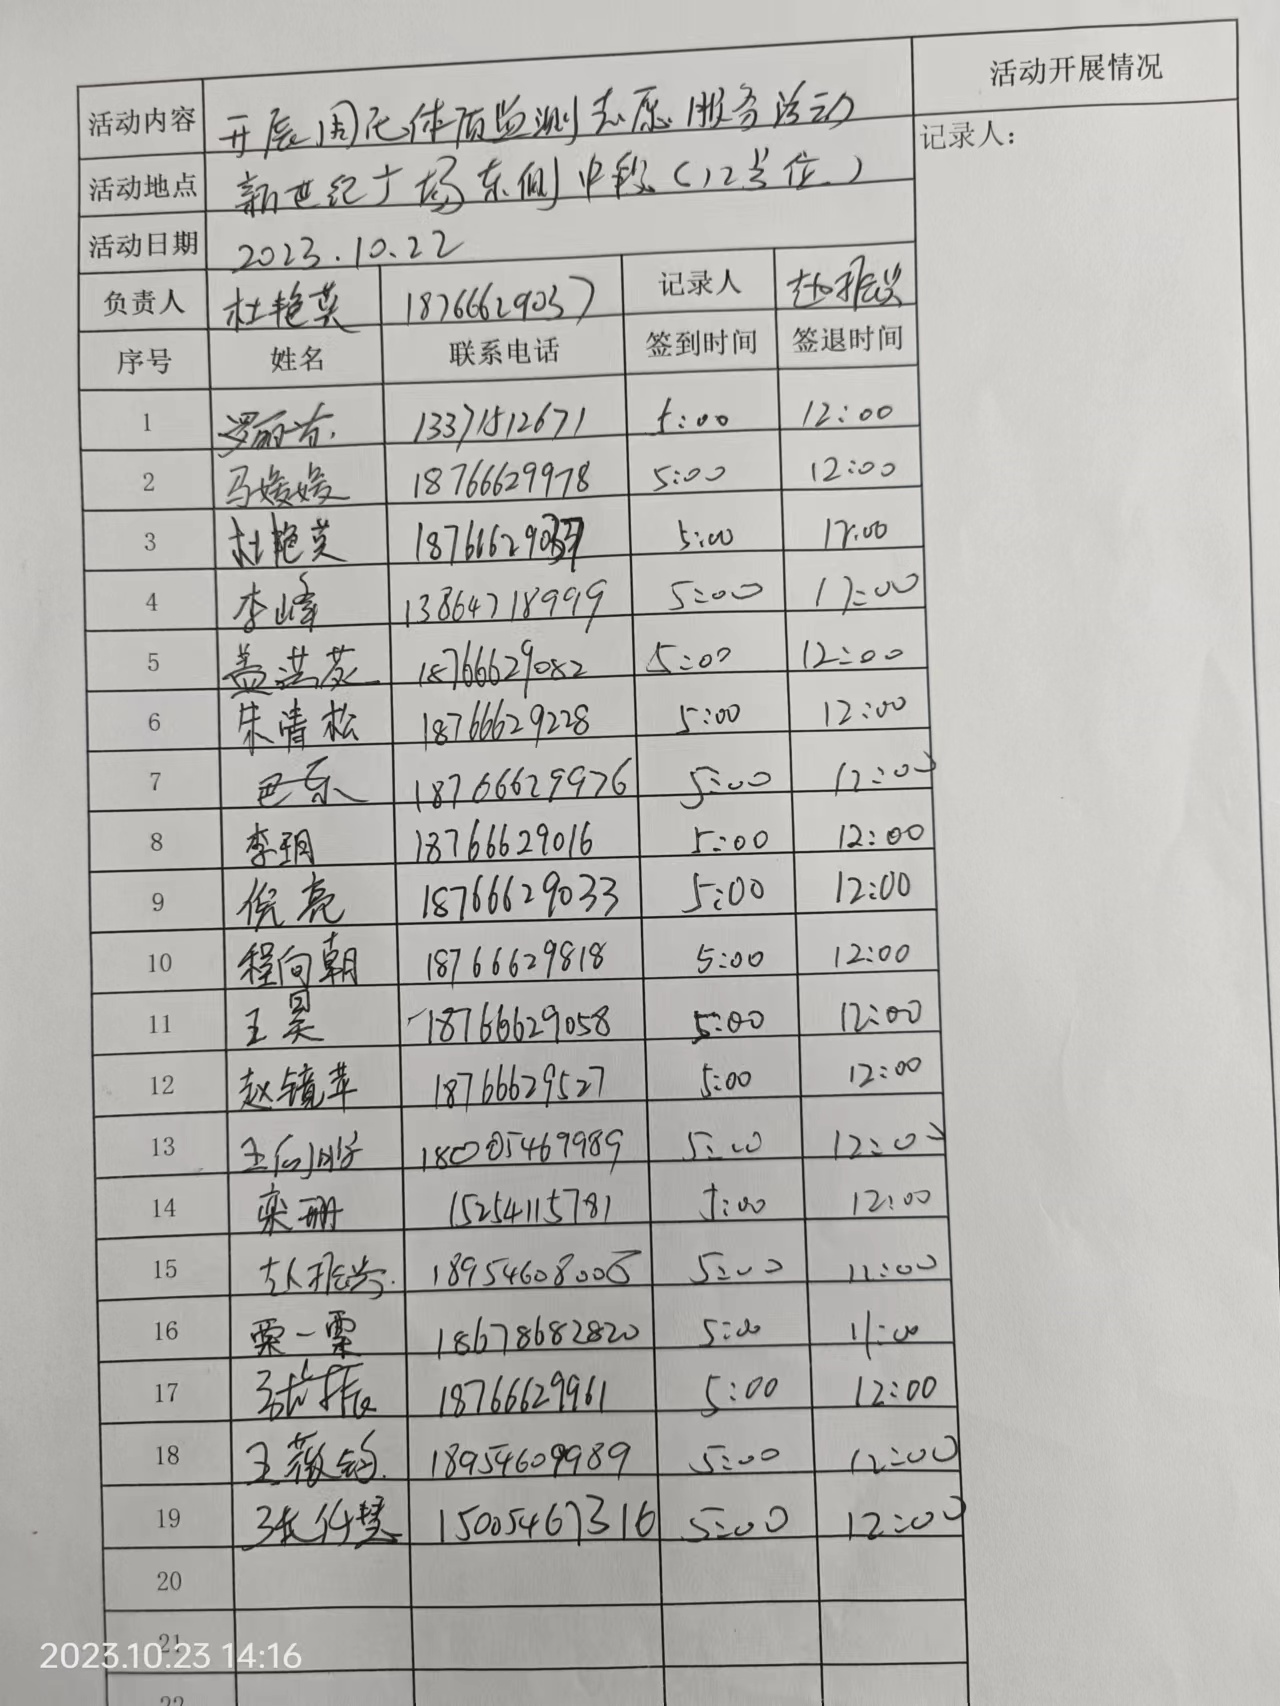 活动内容 开展周民体质监测志愿服务活动
活动开展情况
活动地点 新世纪广场东侧中段(12号位)
记录人:
活动日期 2023.10.22
负责人 杜艳英 18766629037 记录人 赵振兴
序号 姓名 联系电话 签到时间 签退时间
1 13371512671 5:00 12:00
2 马媛媛 18766629978 5:00 12:00
3 杜艳英 18766629037 5:00 12:00
4 李峰 13864718999 5:00 12:00
5 盖洪 18766629082 5:00 12:00
6 朱清松 18766629228 5:00 12:00
7 巴东 18766629976 5:00 12:00
8 李玥 18766629016 5:00 12:00
9 倪亮 18766629033 5:00 12:00
10 程向朝 18766629818 5:00 12:00
11 王昊 18766629058 5:00 12:00
12 赵镜苹 18766629527 5:00 12:00
13 王 5:00 12:00
14 栾珊 15254115781 5:00 12:00
15 赵振兴 18954608006 5:00 11:00
16 栗一栗 18678682820 5:00 11:00
17 18766629961 5:00 12:00
18 王薇 18954609989 5:00 12:00
19 张 慧 15005467316 5:00 12:00
20
21
22
2023.10.23 14:16